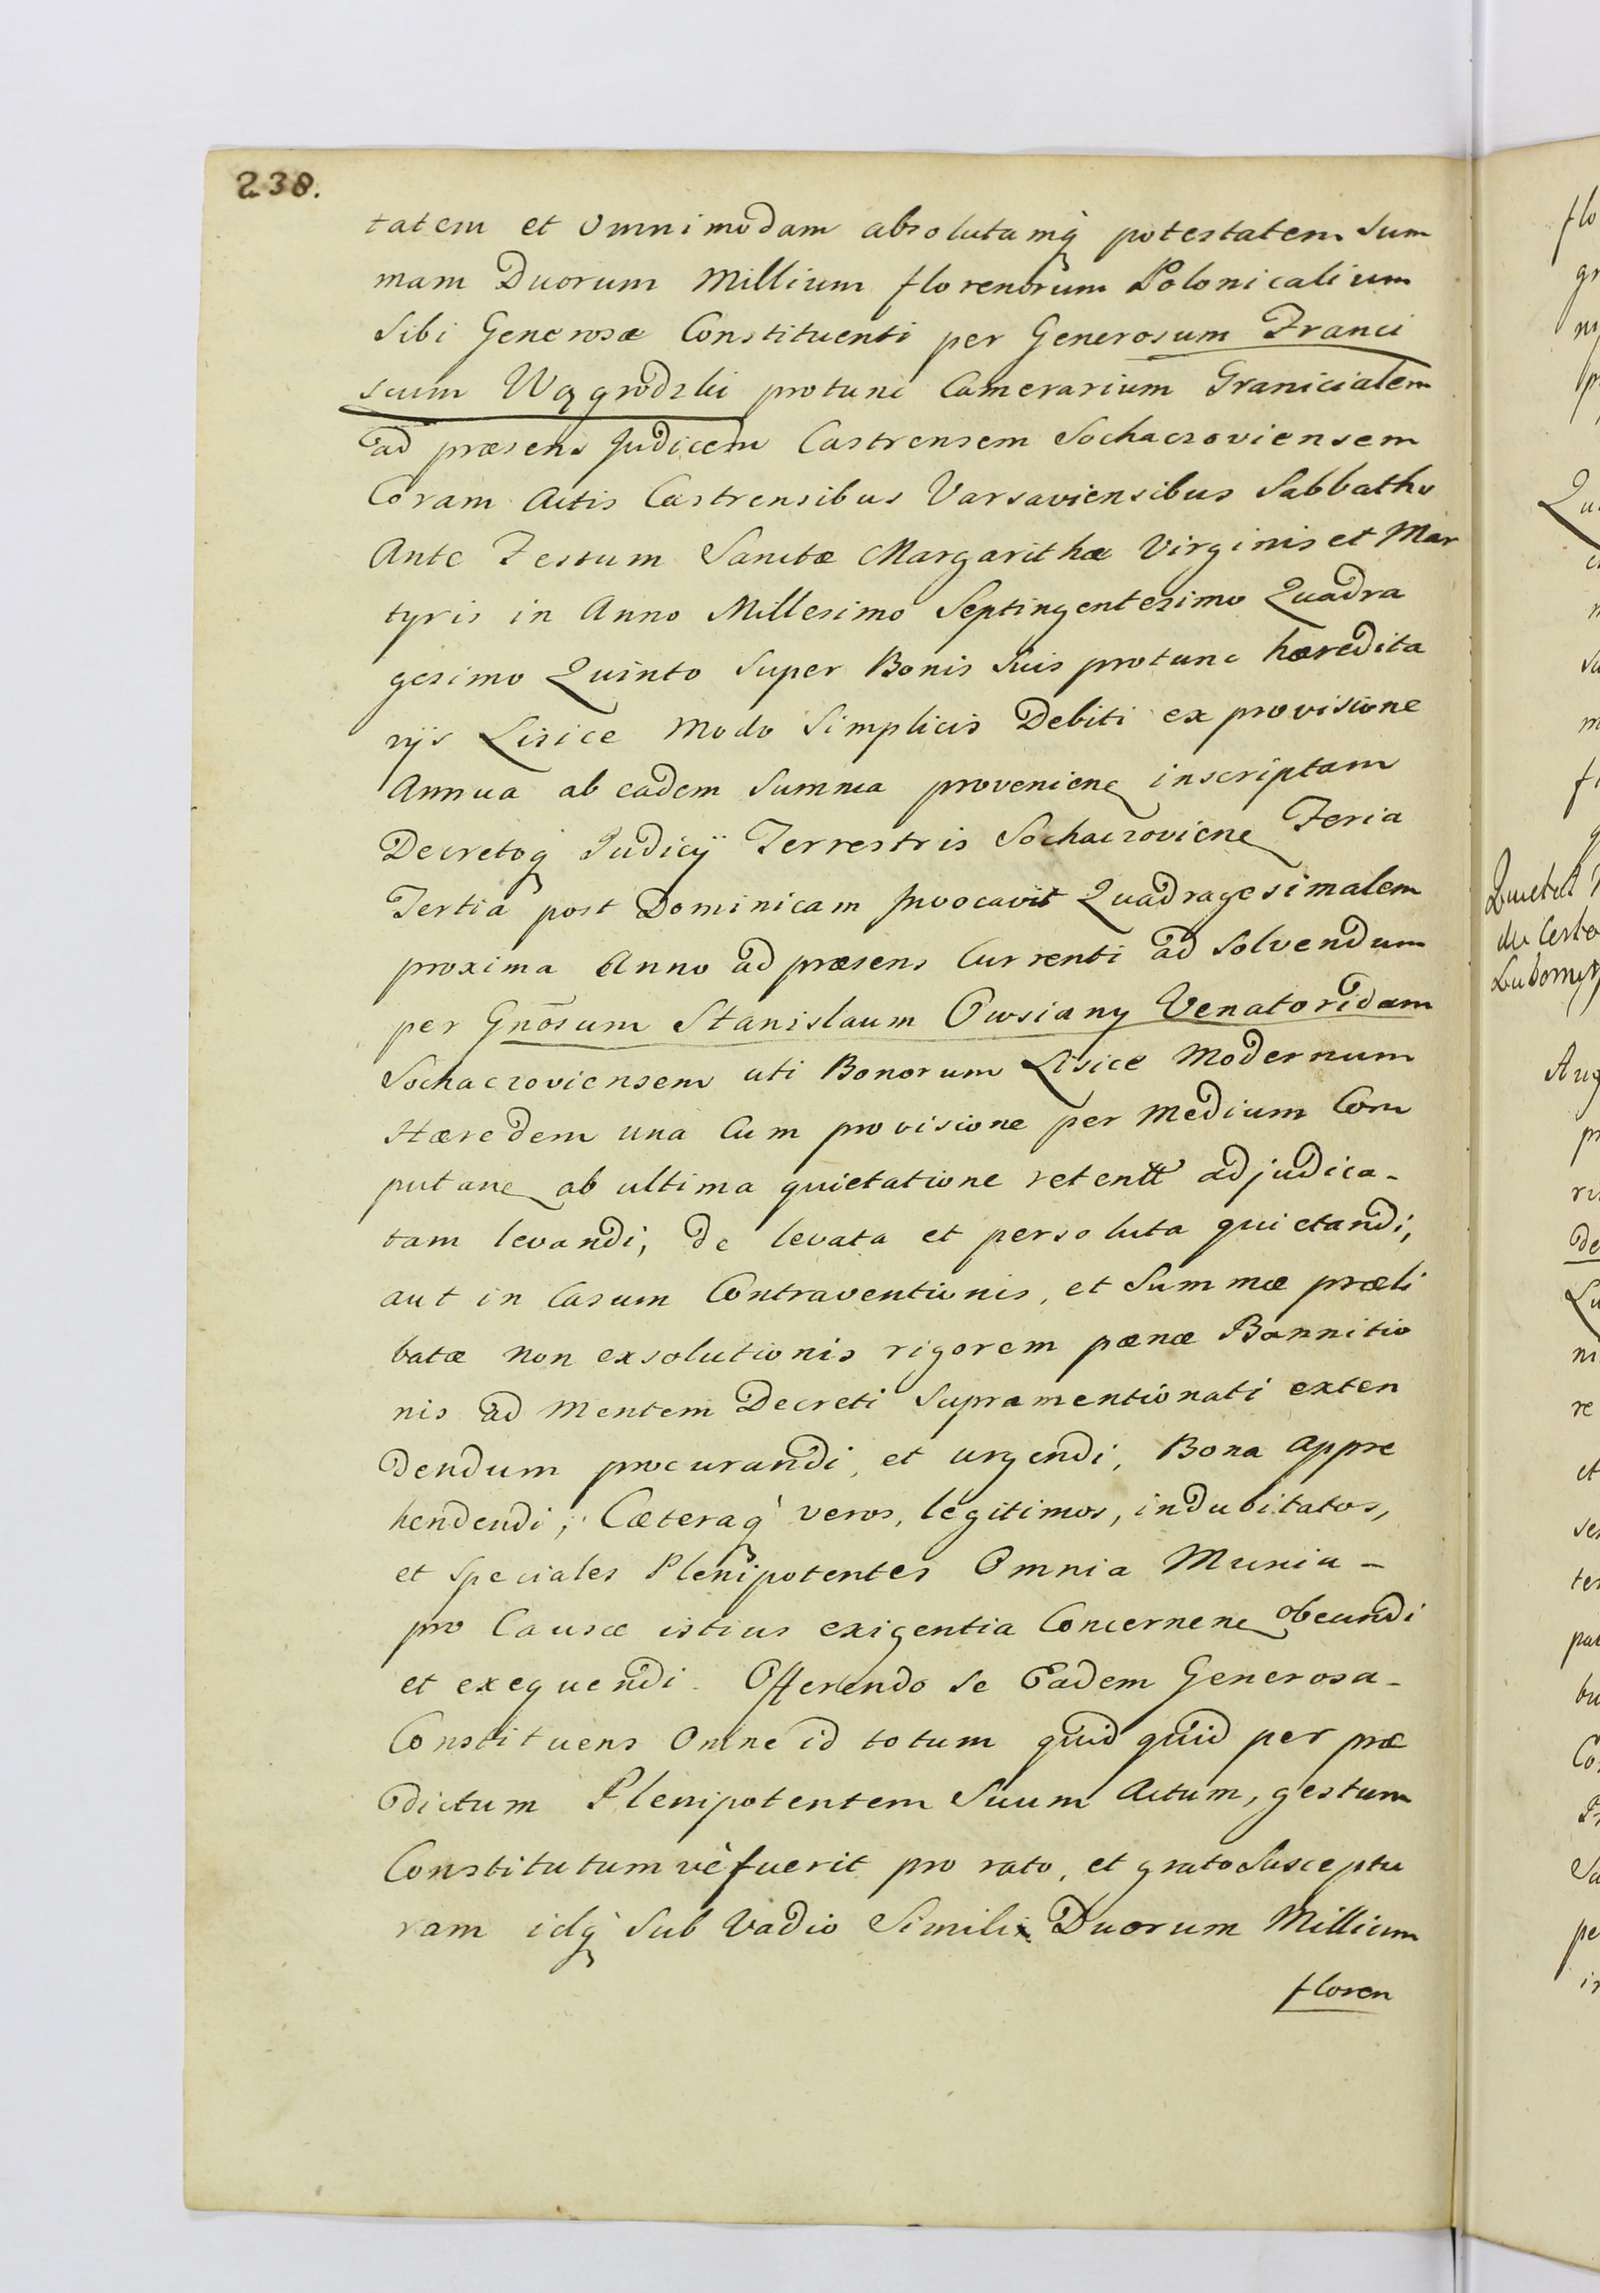 238.
tatem et omnimodam absolutamq̀ potestatem Sum
mam Duorum Millium florenorum Polonicalium
Sibi Generosæ Constituenti per Generosum Franci
scum Wągrodzki protunc Camerarium Granicialem
ad præsens Judicem Castrensem Sochaczoviensem
Coram Actis Castrensibus Varsaviensibus Sabbatho
Ante Festum Sanctæ Margarithæ Virginis et Mar
tyris in Anno Millesimo Septingentesimo Quadra
gesimo Quinto Super Bonis Suis protunc hæredita
rijs Lisice Modo Simplicis Debiti ex provisione
Annua ab eadem Summa provenienę inscriptam
Decretoq Judicÿ Terrestris Sochaczovienę Feria
Tertia post Dominicam Invocavit Quadragesimalem
proxima Anno ad præsens Currenti ad Solvendum
per Gnōsum Stanislaum Owsiany Venatoridam
Sochaczoviensem uti Bonorum Lisice Modernum
Hæredem una Cum provisione per Medium Com
putanę ab ultima quietatione retentt adjudica-
tam levandi, de levata et persoluta quietandi,
aut in Casum Contraventionis, et Summæ præli
batæ non exsolutionis rigorem pænæ Bannitio
nis ad Mentem Decreti Supramentionati exten
dendum procurandi, et urgendi, Bona appre
hendendi, Cæteraq̀ veros, legitimos, indubitatos,
et Speciales Plenipotentes Omnia Munia-
pro Causæ istius exigentia Concernenę obeundi
et exequendi. Offerendo se Eadem Generosa-
Constituens Omne id totum quid quid per præ
dictum Plenipotentem Suum Actum, gestum
Constitutumvè fuerit pro rato, et grato Susceptu
ram idq̀ Sub Vadio Simili Duorum Millium
floren
flo
Quietat
de
Aug